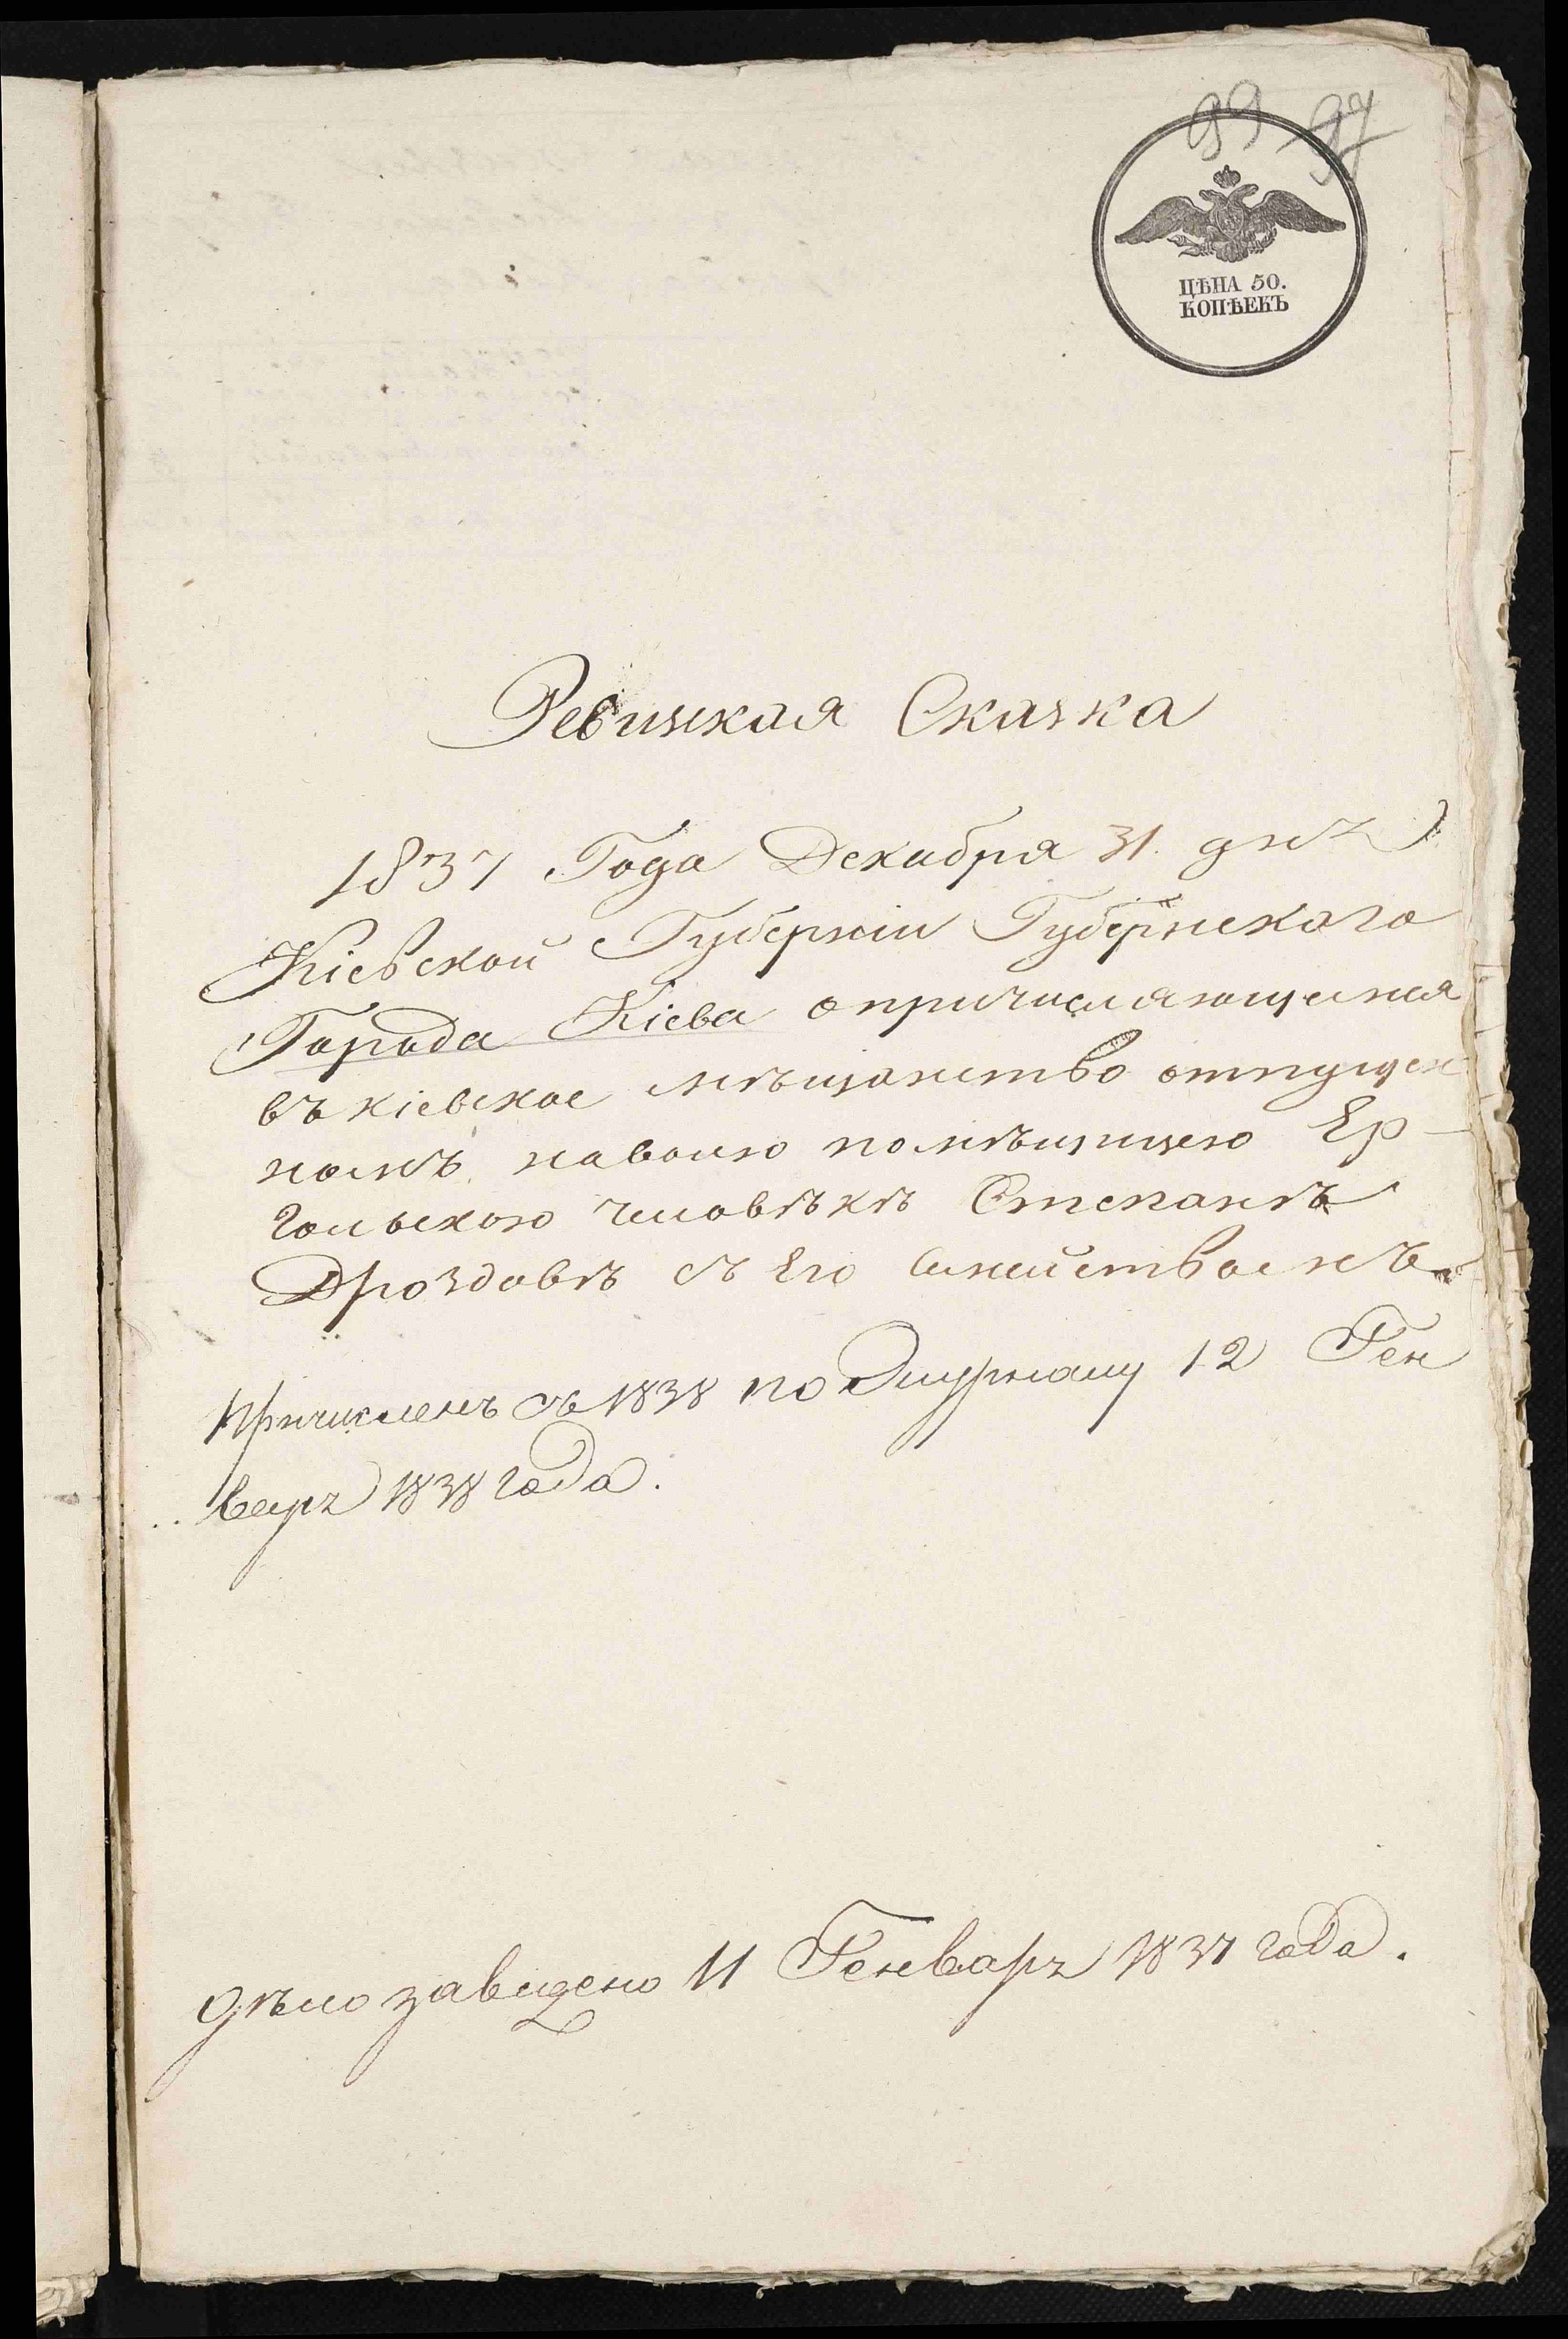 99 97
ЦѢНА 50.
КОПѢЕКЪ
Ревизкая Сказка
1837 Года Декабря 31. дня
Кіевской Губерніи Губернского
Города Кieва опричисляющемся
въ кіевское мѣщанство отпущен
номъ наволю помѣщицею Ер-
гольскою человѣкѣ Степанѣ
Дроздовѣ съ Его Семействомъ
Причисленъ съ 1838 по Журналу 12 Ген
варя 1838 года.
дѣло заведено 11 Генваря 1837 года.